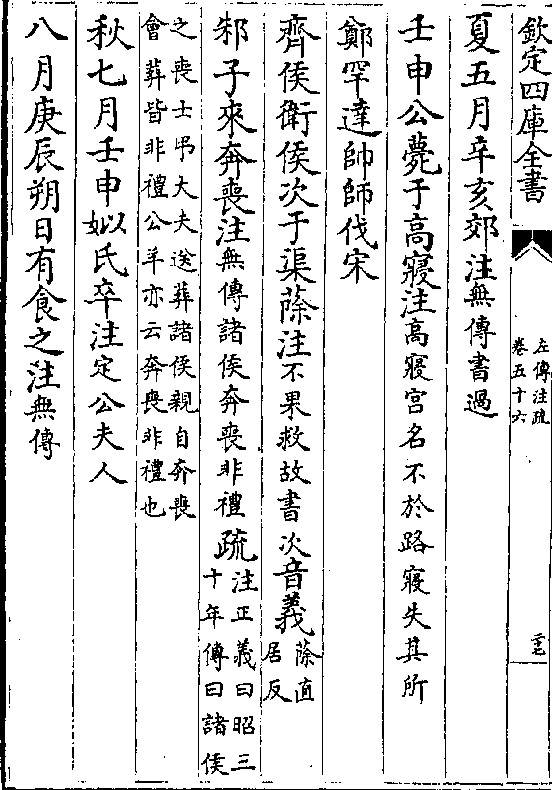 欽定四庫全書
左傳注疏
卷五十六
夏五月辛亥郊注無傳書過
壬申公薨于高寢注高寢宫名不於路寢失其所
鄭罕達帥師伐宋
齊侯衛侯次于渠蒢注不果救故書次音義蒢直
居反
邾子來奔喪注無傳諸侯奔喪非禮疏注正義曰昭三
十年傳曰諸侯
之喪士弔大夫送葬諸侯親自奔喪
會葬皆非禮公羊亦云奔喪非禮也
秋七月壬申姒氏卒注定公夫人
八月庚辰朔日有食之注無傳